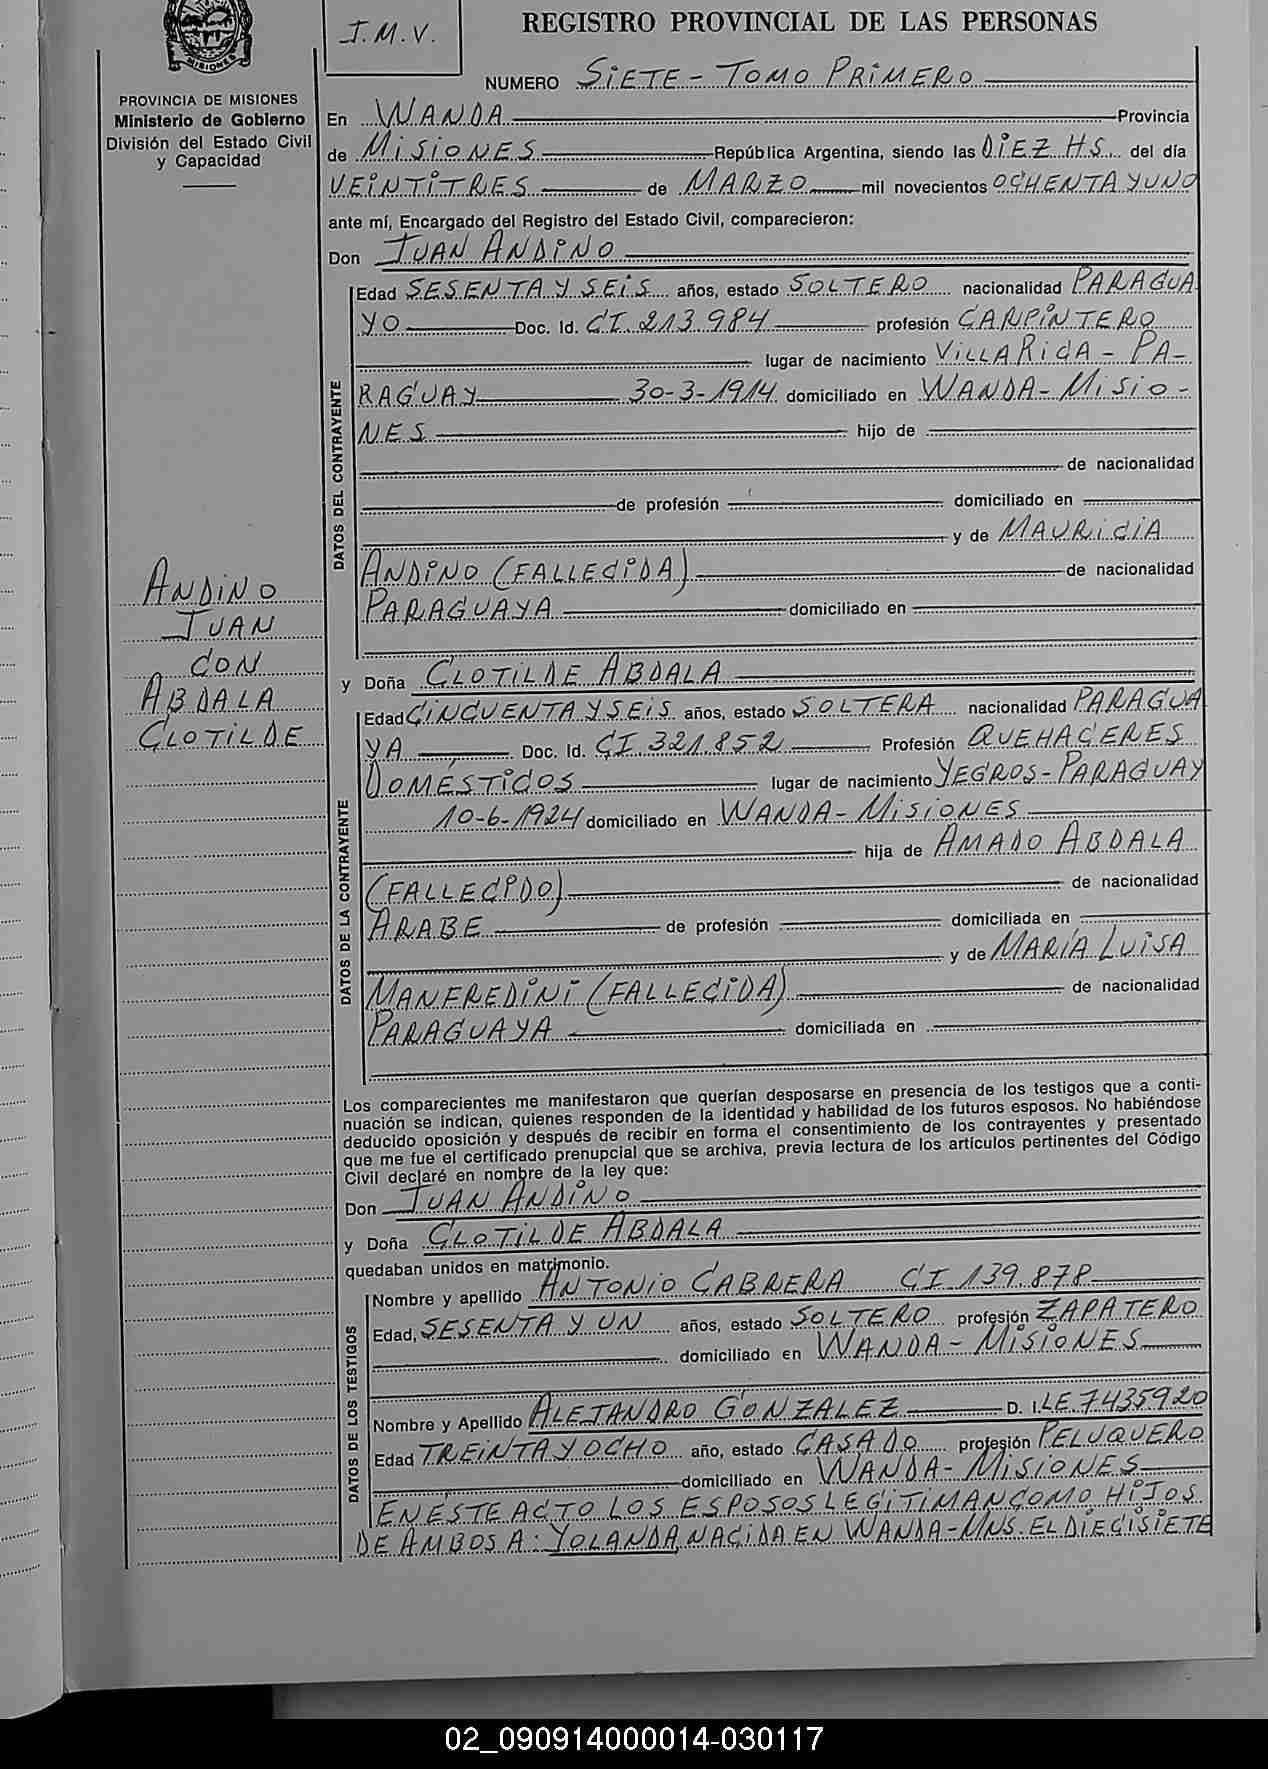 J.M.V.
REGISTRO PROVINCIAL DE LAS PERSONAS
NUMERO SiETE - TOMO PRiMERO
MISIONES
PROVINCIA DE MISIONES
Ministerio de Gobierno
División del Estado Civil
y Capacidad
En WANDA Provincia
de MiSiONES República Argentina, siendo las DiEZ HS. del día
VEiNTiTRES de MARZO mil novecientos OCHENTA Y UNO
ante mí, Encargado del Registro del Estado Civil, comparecieron:
Don JUAN ANDiNO
DATOS DEL CONTRAYENTE
Edad SESENTA Y SEiS años, estado SOLTERO nacionalidad PARAGUA
YO Doc. Id. CI. 213.984 profesión CARPiNTERO
lugar de nacimiento ViLLA RiCA - PA-
RAGUAY 30-3-1914 domiciliado en WANDA - MiSiO-
NES hijo de
de nacionalidad
de profesión domiciliado en
y de MAURiCiA
ANDiNO (FALLECiDA) de nacionalidad
PARAGUAYA domiciliado en
ANDiNO
JUAN
CON
ABDALA
CLOTiLDE
y Doña CLOTiLDE ABDALA
DATOS DE LA CONTRAYENTE
Edad CiNCUENTA Y SEiS años, estado SOLTERA nacionalidad PARAGUA
YA Doc. Id. CI 321.852 Profesión QUEHACERES
DOMÉSTiCOS lugar de nacimiento YEGROS - PARAGUAY
10-6-1924 domiciliado en WANDA - MiSiONES
hija de AMADO ABDALA
(FALLECiDO) de nacionalidad
ARABE de profesión domiciliada en
y de MARÍA LUiSA
MANFREDiNi (FALLECiDA) de nacionalidad
PARAGUAYA domiciliada en
Los comparecientes me manifestaron que querían desposarse en presencia de los testigos que a conti-
nuación se indican, quienes responden de la identidad y habilidad de los futuros esposos. No habiéndose
deducido oposición y después de recibir en forma el consentimiento de los contrayentes y presentado
que me fue el certificado prenupcial que se archiva, previa lectura de los artículos pertinentes del Código
Civil declaré en nombre de la ley que:
Don JUAN ANDiNO
y Doña CLOTiLDE ABDALA
quedaban unidos en matrimonio.
DATOS DE LOS TESTIGOS
Nombre y apellido ANTONiO CABRERA CI 139.878
Edad, SESENTA Y UN años, estado SOLTERO profesión ZAPATERO
domiciliado en WANDA - MiSiONES
Nombre y Apellido ALEJANDRO GONZALEZ D. I. LE. 7435920
Edad TREiNTA Y OCHO año, estado CASADO profesión PELUQUERO
domiciliado en WANDA - MiSiONES
EN ÉSTE ACTO LOS ESPOSOS LEGiTiMAN COMO HiJOS
DE AMBOS A: YOLANDA, NACiDA EN WANDA - MNS. EL DiECiSiETE
02_090914000014-030117